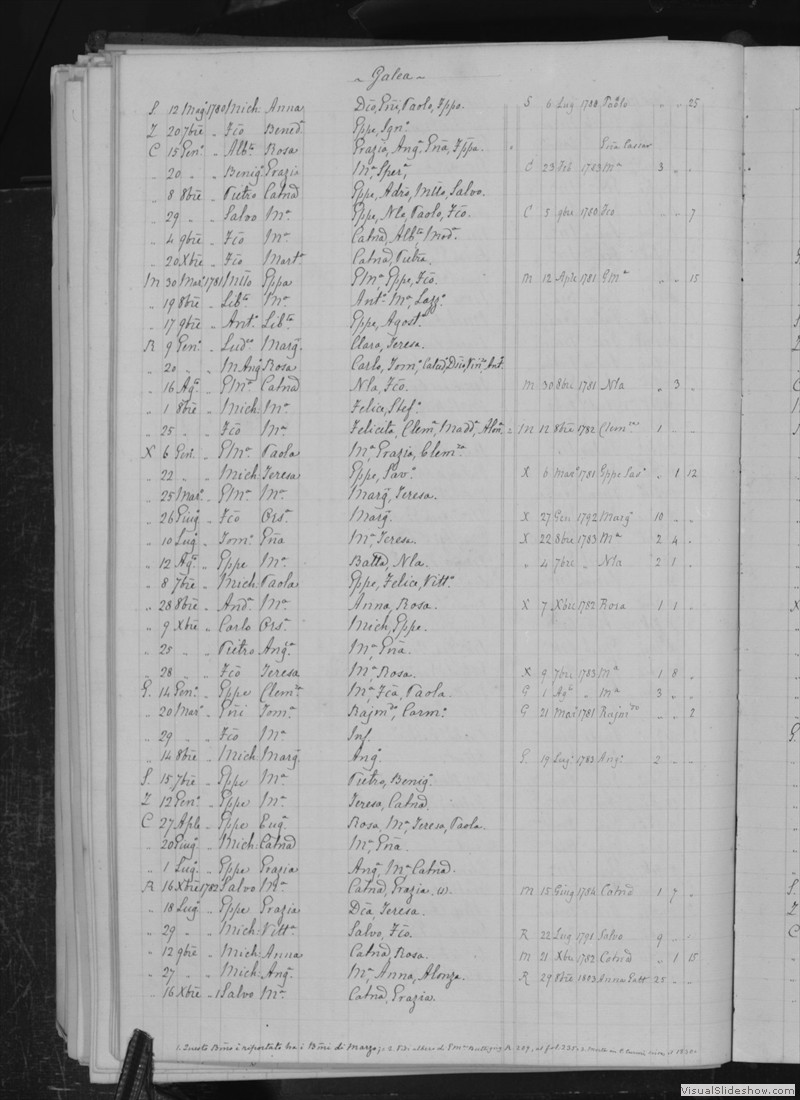 Galea
S 12 Mag. 1780 Mich Anna Dio, Eñi, Paolo, Eppo. S 6 Lug 1788 Paolo " " 25
Z 20 7bre " Fco Bened. Eppe, Ign.
C 15 Gen. " Alb. Rosa Grazia, Ang. Eña, Eppa.
" 20 " " Benig. Grazia Ma. Sper. C 23 Feb 1783 Ma 3 " "
" 8 8bre " Pietro Catnd Eppe, Adrio, Salvo.
" 29 " " Salvo Ma. Eppe, Nla, Paolo, Fco. C 5 9bre 1780 Fco " " 7
" 4 9bre " Fco Ma. Catnd, Alb. Mod.
" 20 Xbre " Fco Mart. Catnd, Pietra.
M 30 Mar. 1781 Eppa Ema, Eppe, Fco. M 12 Aple 1781 Ema " " 15
" 19 8bre " Lib. Ma. Ant. Ma, Lazz.
" 17 9bre " Ant. Lib. Eppe, Agost.
R 9 Gen. " Lud. Marg. Clara, Teresa.
" 20 " " M Ang. Rosa Carlo, Tom. Catnd, Ant.
" 16 Ag. " Ema Catnd Nla, Fco. M 30 8bre 1781 Nla " 3 "
" 1 8bre " Mich. Ma. Felice, Stef.
" 25 " " Fco Ma. Felicita, Clem. Madd. Alon. M 12 8bre 1782 Clem. 1 " "
X 6 Gen. " Ema Paola Ma. Grazia, Clem.
" 22 " " Mich. Teresa Eppe, Sav. X 6 Mar. 1781 Eppe Sav. " 1 12
" 25 Mar. " Ema Ma. Marg., Teresa.
" 26 Giug. " Fco Ors. Marg. X 27 Gen 1792 Marg. 10 " "
" 10 Lug. " Tom. Eña Ma. Teresa. X 22 8bre 1783 Ma 2 4 "
" 12 Ag. " Eppe Ma. Batta, Nla. " 4 7bre " Nla 2 1 "
" 8 7bre " Mich. Paola Eppe, Felice, Vitt.
" 28 8bre " And. Ma. Anna, Rosa. X 7 Xbre 1782 Rosa 1 1 "
" 9 Xbre " Carlo Ors. Mich, Eppe.
" 25 " " Pietro Ang. Ma. Eña.
" 28 " " Fco Teresa Ma. Rosa. X 9 7bre 1783 Ma 1 8 "
G. 14 Gen. " Eppe Clem. Ma. Fca, Paola. G 1 Ag. " Ma 3 " "
" 20 Mar. " Eñi Tom. Rajm., Carm. G 21 Mar. 1781 Rajm. " " 2
" 29 " " Fco Ma. Inf.
" 14 8bre " Mich. Marg. Ang. G 19 Lug. 1783 Ang. 2 " "
S. 15 7bre " Eppe Ma. Pietro, Benig.
Z 12 Gen. " Eppe Ma. Teresa, Catnd.
C 27 Aple " Eppe Eug. Rosa, Ma. Teresa, Paola.
" 20 Giug. " Mich. Catnd Ma. Eña.
" 1 Lug. " Eppe Grazia Ang. Ma. Catnd.
R 16 Xbre 1782 Salvo Ma. Catnd, Grazia. (1). M 15 Giug 1784 Catnd 1 7 "
" 18 Lug. " Eppe Grazia Dca, Teresa.
" 29 " " Mich. Vitt. Salvo, Fco. R 22 Lug 1791 Salvo 9 " "
" 12 9bre " Mich. Anna Catnd, Rosa. M 21 Xbre 1782 Catnd " 1 15
" 27 " " Mich. Ang. Ma. Anna, Alonza. R 29 8bre 1803 Anna 25 " "
" 16 Xbre " Salvo Ma. Catnd, Grazia.
1. Questo è riportato tra i di Marzo;
VisualSlideshow.com